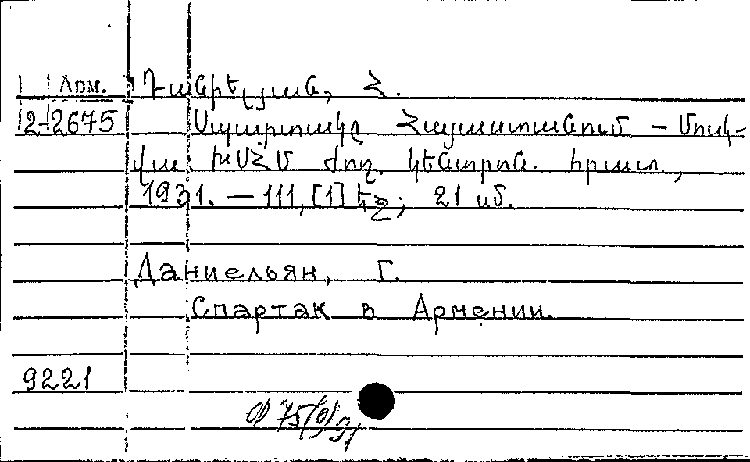 Арм. Դանիելյան, Հ.
2-2675 Սպարտակը Հայաստանում – Մոսկ-
վա ԽՍՀՄ Ժող. կենտրոն. հրատ.,
1931. – 111, [1] եջ; 21 սմ.
Даниельян, Г.
Спартак в Армении.
9221